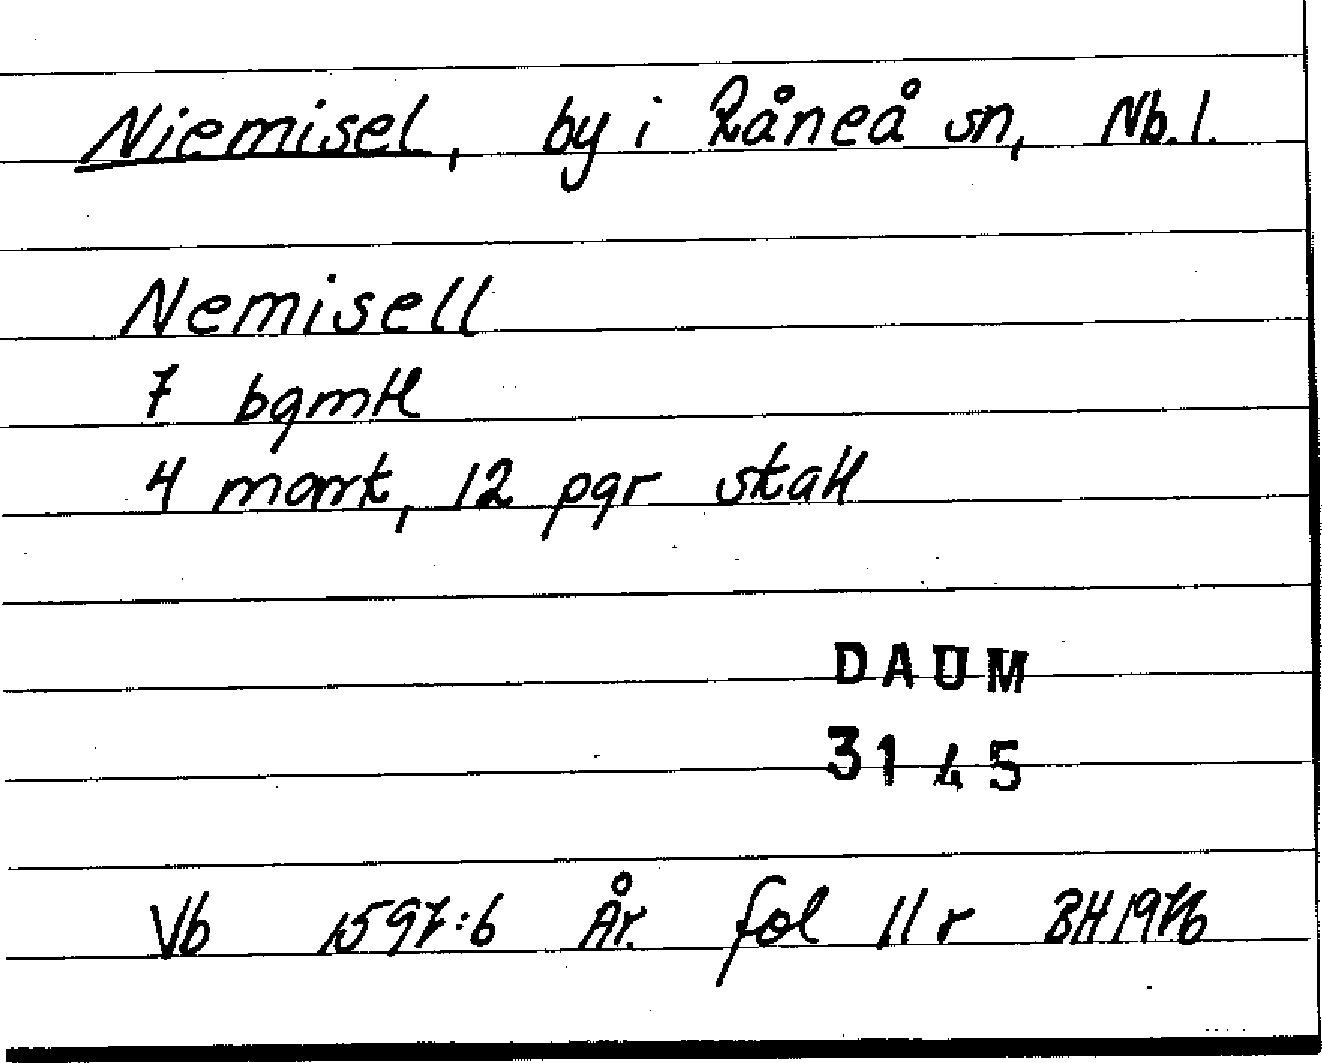 Niemisel, by i Råneå sn, Nb.l.
Nemisell
7 bgmtl
4 mark, 12 pgr skatt
DAUM
3145
Vb 1597:6 År. fol 11 r BH 1976